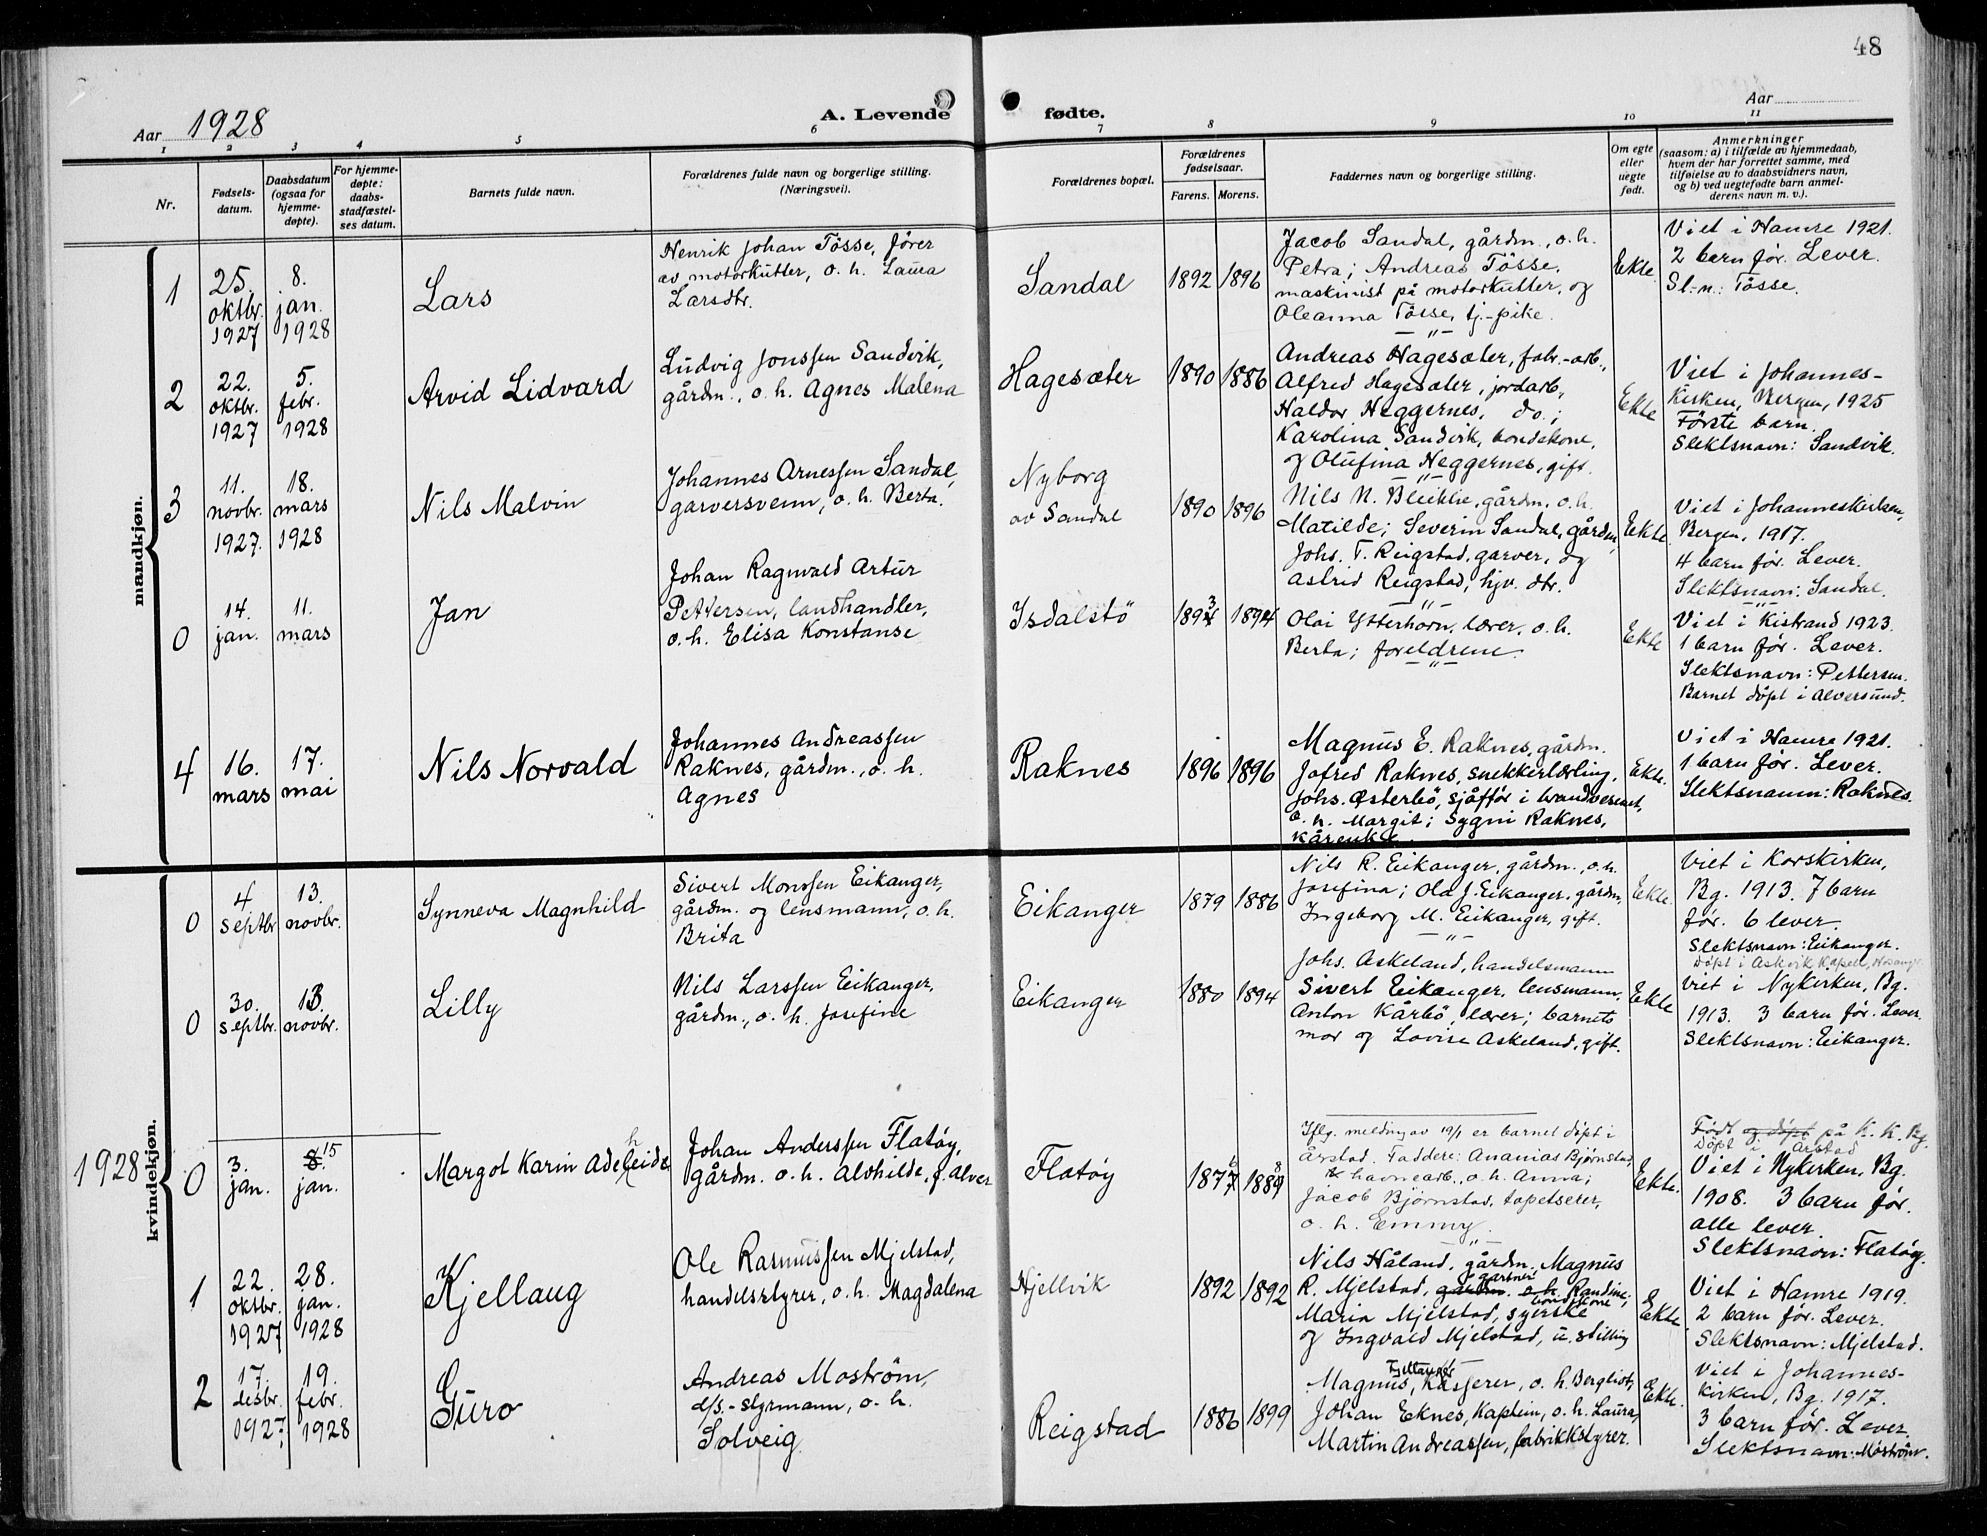 48
Aar 1928
A. Levende fødte.
Aar
1 2 3 4 5 6 7 8 9 10 11
Nr.
Fødsels-
datum.
Daabsdatum
(ogsaa for
hjemme-
døpte).
For hjemme-
døpte:
daabs-
stadfæstel-
ses datum.
Barnets fulde navn.
Forældrenes fulde navn og borgerlige stilling.
(Næringsvei).
Forældrenes bopæl.
Forældrenes
fødselsaar.
Farens. Morens.
Faddernes navn og borgerlige stilling.
Om egte
eller
uegte
født.
Anmerkninger
(saasom: a) i tilfælde av hjemmedaab,
hvem der har forrettet samme, med
tilføielse av to daabsvidners navn,
og b) ved uegtefødte barn anmel-
derens navn m. v.).
mandkjøn.
1
25.
oktbr.
1927
8.
jan.
1928
Lars
Henrik Johan Tösse, förer
av motorkutter, o. h. Laura
Larsdtr.
Sandal
1892 1896
Jacob Sandal, gårdm., o. h.
Petra; Andreas Tösse,
maskinist på motorkutter, og
Oleanna Tösse, tj.-pike.
Ekte
Viet i Hamre 1921.
2 barn för. Lever.
Sl.-n.: Tösse.
2
22.
oktbr.
1927
5.
febr.
1928
Arvid Lidvard
Ludvig Jonssen Sandvik,
gårdm., o. h. Agnes Malena
Hagesæter
1890 1886
Andreas Hagesæter, fabr.-arb.,
Alfred Hagesæter, jordarb,
Haldor Heggernes, do.;
Karolina Sandvik, bondekone,
og Olufina Heggernes, gift.
Ekte
Viet i Johannes-
kirken, Bergen, 1925
Förste barn.
Slektsnavn: Sandvik.
3
11.
novbr.
1927.
18.
mars
1928
Nils Malvin
Johannes Arnessen Sandal,
garversvenn, o. h. Berta.
Nyborg
av Sandal
1890 1896
Nils N. Bleiklie, gårdm., o. h.
Matilde; Severin Sandal, gårdm,
Johs. T. Reigstad, garver, og
Astrid Reigstad, hjv. dtr.
Ekte.
Viet i Johanneskirken,
Bergen, 1917.
4 barn för. Lever.
Slektsnavn: Sandal.
0
14.
jan.
11.
mars
Jan
Johan Ragnvald Artur
Pettersen, landhandler,
o. h. Elisa Konstanse
Isdalstö
1893 1894
Olai Ytterhorn, lærer, o. h.
Berta; foreldrene.
Ekte
Viet i Kistrand 1923.
1 barn för. Lever.
Slektsnavn: Pettersen.
Barnet döpt i Alversund.
4
16.
mars
17.
mai
Nils Norvald
Johannes Andreassen
Raknes, gårdm., o. h.
Agnes
Raknes
1896 1896
Magnus E. Raknes, gårdm.
Jofred Raknes, snekkerlærling,
Johs. Österbö, sjåför i brandvesenet,
o. h. Margit; Sygni Raknes,
kårenke.
Ekte.
Viet i Hamre 1921.
1 barn för. Lever.
Slektsnavn: Raknes.
kvindekjøn.
0
4
septbr
13.
novbr.
Synneva Magnhild
Sivert Monssen Eikanger,
gårdm. og lensmann, o. h.
Brita
Eikanger
1879 1886
Nils R. Eikanger, gårdm., o. h.
Josefina; Ola J. Eikanger, gårdm,
Ingeborg M. Eikanger, gift.
Ekte
Viet i Korskirken,
Bg. 1913. 7 barn
för. 6 lever.
Slektsnavn: Eikanger.
Döpt i Askvik kapell, Hosanger
0
30.
septbr.
13.
novbr.
Lilly
Nils Larssen Eikanger,
gårdm., o. h. Josefine
Eikanger
1880 1894
Johs. Askeland, handelsmann
Sivert Eikanger, lensmann,
Anton Kårbö, lærer; barnets
mor og Lovise Askeland, gift.
Ekte
Viet i Nykirken, Bg.
1913. 3 barn för. Lever
Slektsnavn: Eikanger.
1928
0
3.
jan.
8. 15
jan.
Margot Karin Adelheide
Johan Anderssen Flatöy,
gårdm. o. h. Alvhilde, f. Alver
Flatöy
1876 1888
Iflg. melding av 19/1 er barnet döpt i
Årstad. Faddere: Ananias Bjørnstad,
havnearb., o. h. Anna;
Jacob Bjørnstad, tapetserer,
o. h. Emmy.
Ekte.
Født og döpt på K. K. Bg.
Döpt i Årstad
Viet i Nykirken, Bg.
1908. 3 barn för.
alle lever.
Slektsnavn: Flatöy.
1
22.
oktbr.
1927
28.
jan.
1928
Kjellaug
Ole Rasmussen Mjelstad,
handelsstyrer, o. h. Magdalena
Hjellvik
1892 1892
Nils Håland, gårdm. Magnus
R. Mjelstad, gårdm. gartner o. h. Randine, bondekone;
Maria Mjelstad, syerske
og Ingvald Mjelstad, u. stilling
Ekte
Viet i Hamre 1919.
2 barn för. Lever.
Slektsnavn: Mjelstad.
2
17.
desbr.
1927
19.
febr.
1928
Guro
Andreas Moström,
d/s.-styrmann, o. h.
Solveig
Reigstad
1886 1899
Magnus Fjeltanger, kasserer, o. h. Bergliot,
Johan Eknes, kaptein, o. h. Laura,
Martin Andreassen, fabrikkstyrer.
Ekte.
Viet i Johannes-
kirken, Bg. 1917.
3 barn för. Lever.
Slektsnavn: Moström.